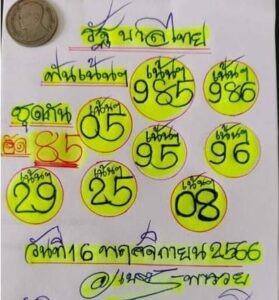 รัฐบาลไทย
ฟันเน้นๆ
เน้นๆ 985
เน้นๆ 986
ชุดกัน
เน้นๆ 05
85
เน้นๆ 95
เน้นๆ 96
เน้นๆ 29
เน้นๆ 25
เน้นๆ 08
วันที่ 16 พฤศจิกายน 2566